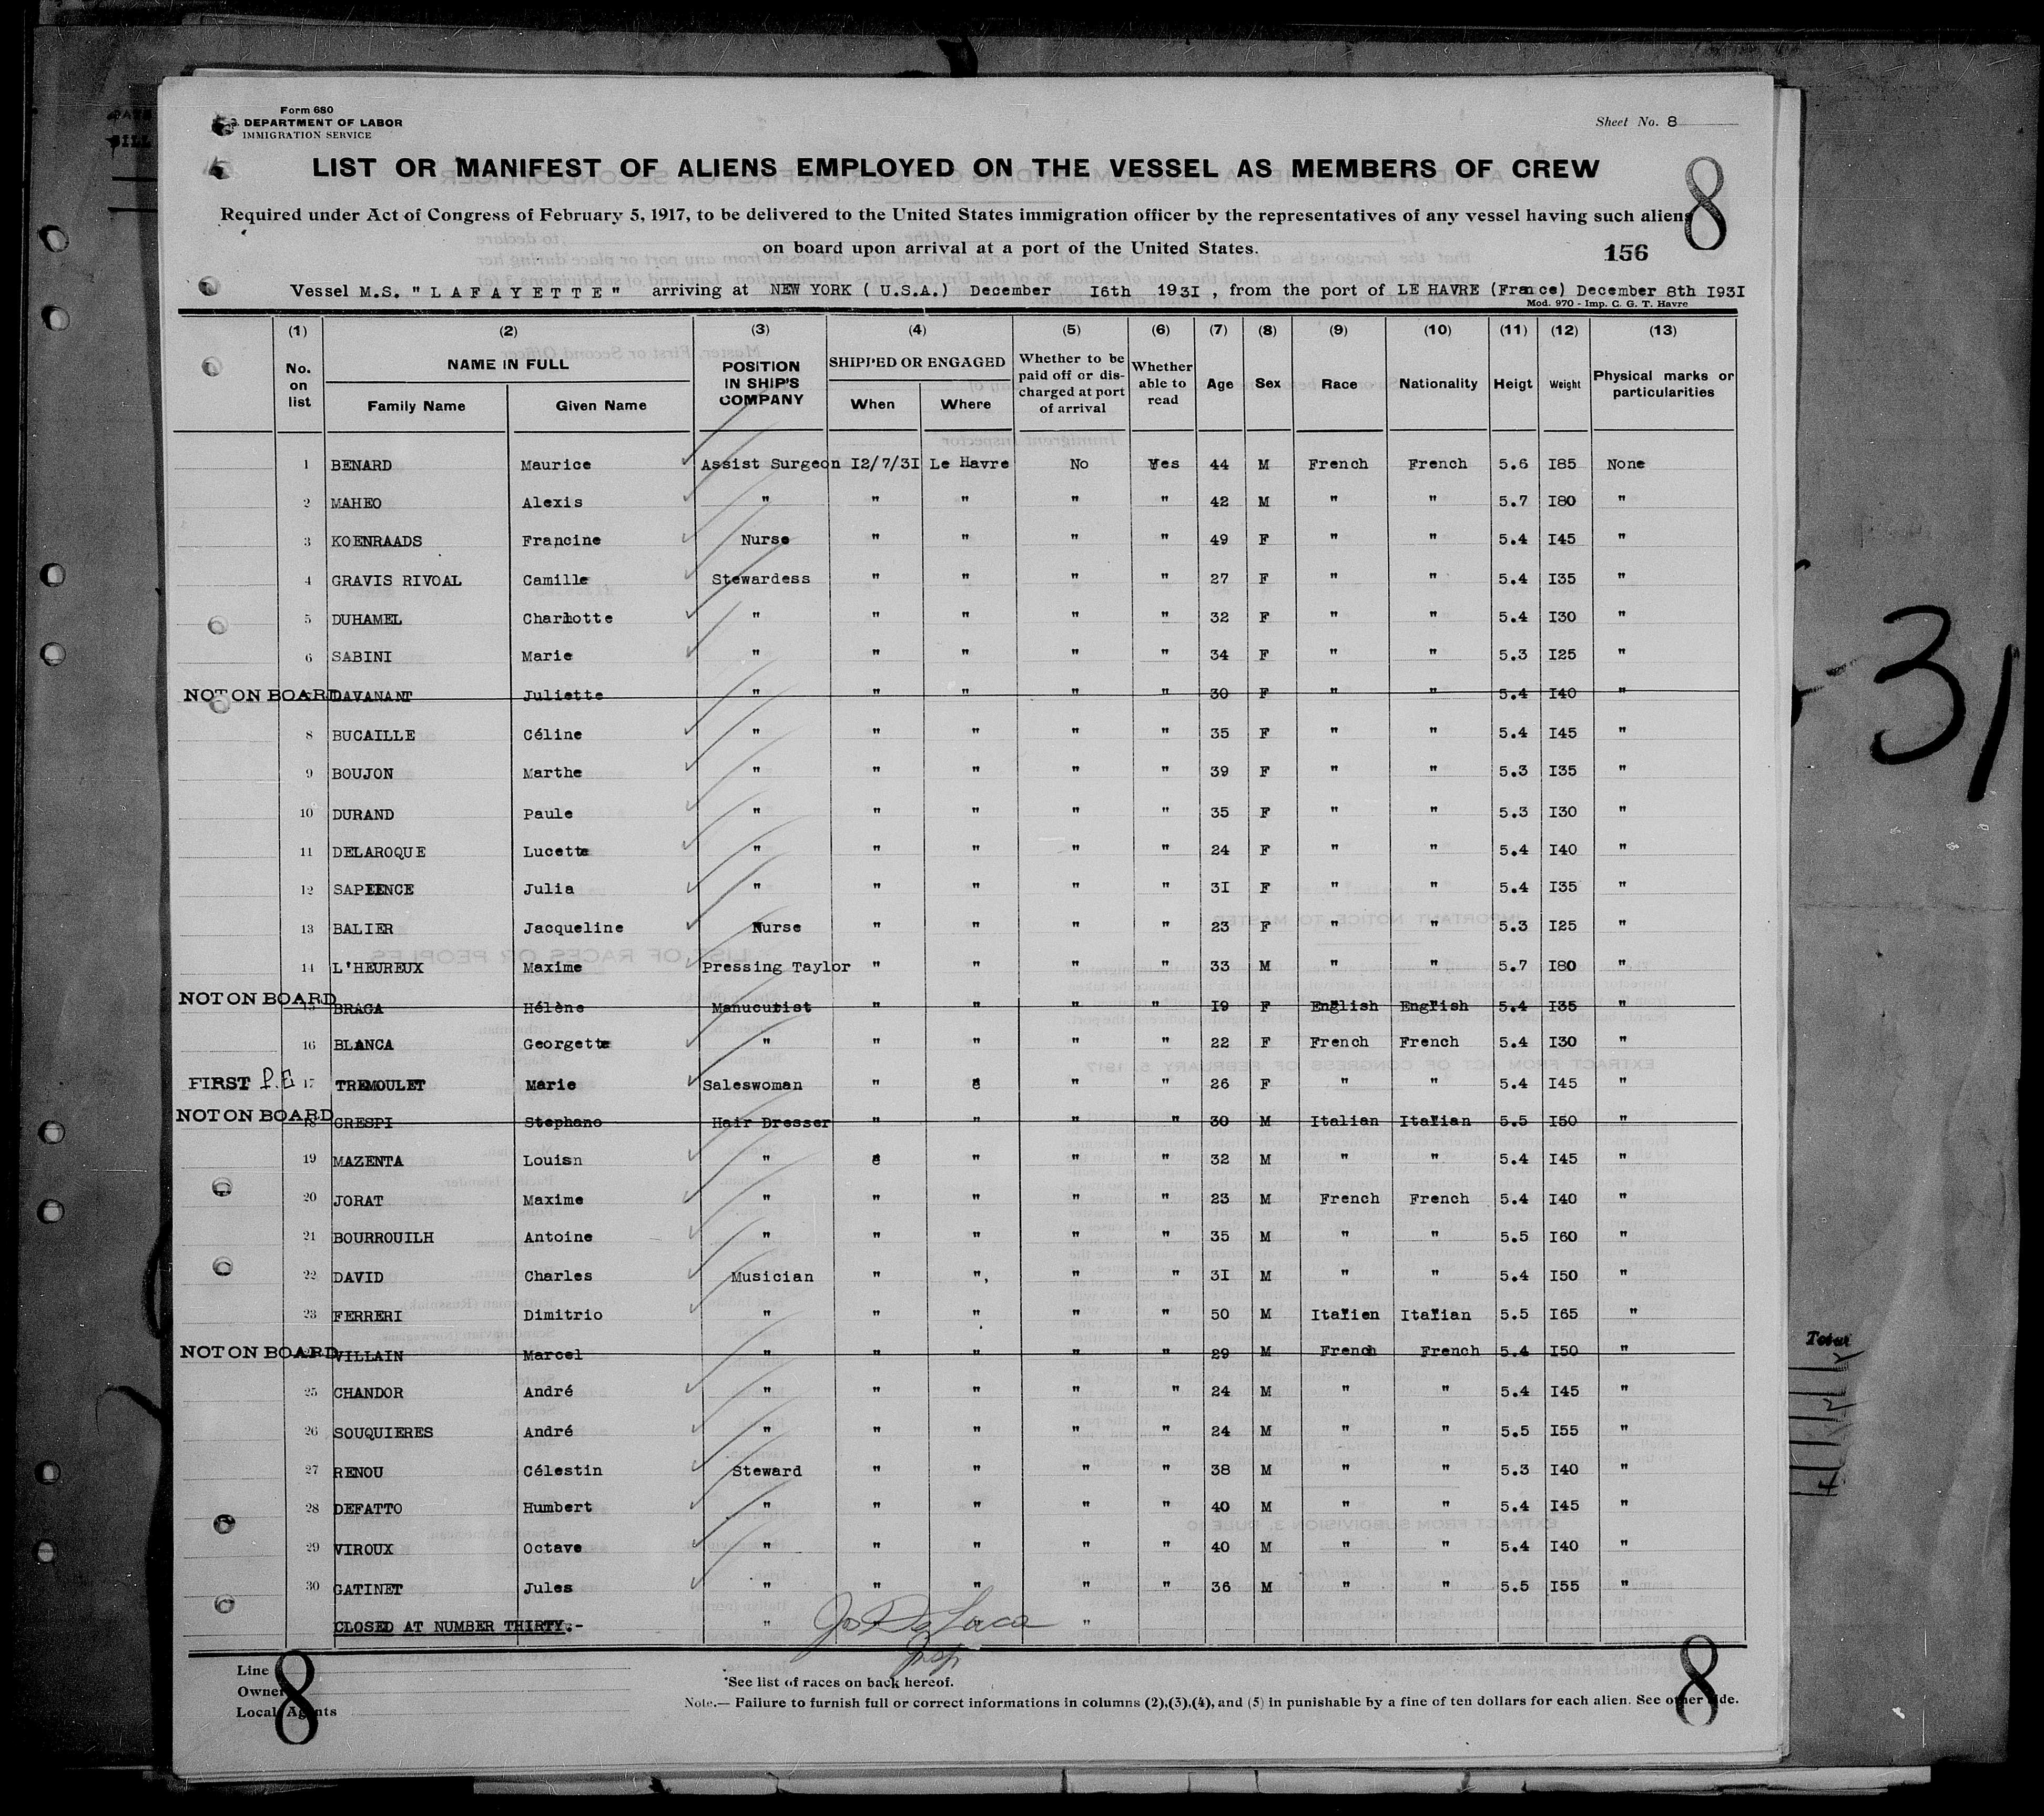 Form 680
DEPARTMENT OF LABOR
IMMIGRATION SERVICE
Sheet No. 8
LIST OR MANIFEST OF ALIENS EMPLOYED ON THE VESSEL AS MEMBERS OF CREW
8
Required under Act of Congress of February 5, 1917, to be delivered to the United States immigration officer by the representatives of any vessel having such aliens
on board upon arrival at a port of the United States.
156
Vessel M.S. "LAFAYETTE" arriving at NEW YORK (U.S.A.) December I6th 193I, from the port of LE HAVRE (France) December 8th I93I
Mod. 970 - Imp. C. G. T. Havre
(1) (2) (3) (4) (5) (6) (7) (8) (9) (10) (11) (12) (13)
No. on list NAME IN FULL Family Name Given Name POSITION IN SHIP'S COMPANY SHIPPED OR ENGAGED When Where Whether to be paid off or discharged at port of arrival Whether able to read Age Sex Race Nationality Heigt Weight Physical marks or particularities
1 BENARD Maurice Assist Surgeon I2/7/3I Le Havre No Yes 44 M French French 5.6 I85 None
2 MAHEO Alexis " " " " " 42 M " " 5.7 I80 "
3 KOENRAADS Francine Nurse " " " " 49 F " " 5.4 I45 "
4 GRAVIS RIVOAL Camille Stewardess " " " " 27 F " " 5.4 I35 "
5 DUHAMEL Charlotte " " " " " 32 F " " 5.4 I30 "
6 SABINI Marie " " " " " 34 F " " 5.3 I25 "
NOT ON BOARD DAVANANT Juliette " " " " " 30 F " " 5.4 I40 "
8 BUCAILLE Céline " " " " " 35 F " " 5.4 I45 "
9 BOUJON Marthe " " " " " 39 F " " 5.3 I35 "
10 DURAND Paule " " " " " 35 F " " 5.3 I30 "
11 DELAROQUE Lucette " " " " " 24 F " " 5.4 I40 "
12 SAPIENCE Julia " " " " " 3I F " " 5.4 I35 "
13 BALIER Jacqueline Nurse " " " " 23 F " " 5.3 I25 "
14 L'HEUREUX Maxime Pressing Taylor " " " " 33 M " " 5.7 I80 "
NOT ON BOARD 15 BRAGA Hélène Manucutist " " " " I9 F English English 5.4 I35 "
16 BLANCA Georgette " " " " " 22 F French French 5.4 I30 "
FIRST P.E 17 TREMOULET Marie Saleswoman " " " " 26 F " " 5.4 I45 "
NOT ON BOARD 18 CRESPI Stephano Hair Dresser " " " " 30 M Italian Italian 5.5 I50 "
19 MAZENTA Louisn " " " " " 32 M " " 5.4 I45 "
20 JORAT Maxime " " " " " 23 M French French 5.4 I40 "
21 BOURROUILH Antoine " " " " " 35 M " " 5.5 I60 "
22 DAVID Charles Musician " ", " " 3I M " " 5.4 I50 "
23 FERRERI Dimitrio " " " " " 50 M Italien Italian 5.5 I65 "
NOT ON BOARD VILLAIN Marcel " " " " " 29 M French French 5.4 I50 "
25 CHANDOR André " " " " " 24 M " " 5.4 I45 "
26 SOUQUIERES André " " " " " 24 M " " 5.5 I55 "
27 RENOU Célestin Steward " " " " 38 M " " 5.3 I40 "
28 DEFATTO Humbert " " " " " 40 M " " 5.4 I45 "
29 VIROUX Octave " " " " " 40 M " " 5.4 I40 "
30 GATINET Jules " " " " " 36 M " " 5.5 I55 "
CLOSED AT NUMBER THIRTY.- " " "
Line
Owner
Local Agents
8
*See list of races on back hereof.
Note.— Failure to furnish full or correct informations in columns (2),(3),(4), and (5) in punishable by a fine of ten dollars for each alien. See other side.
8
31
Total